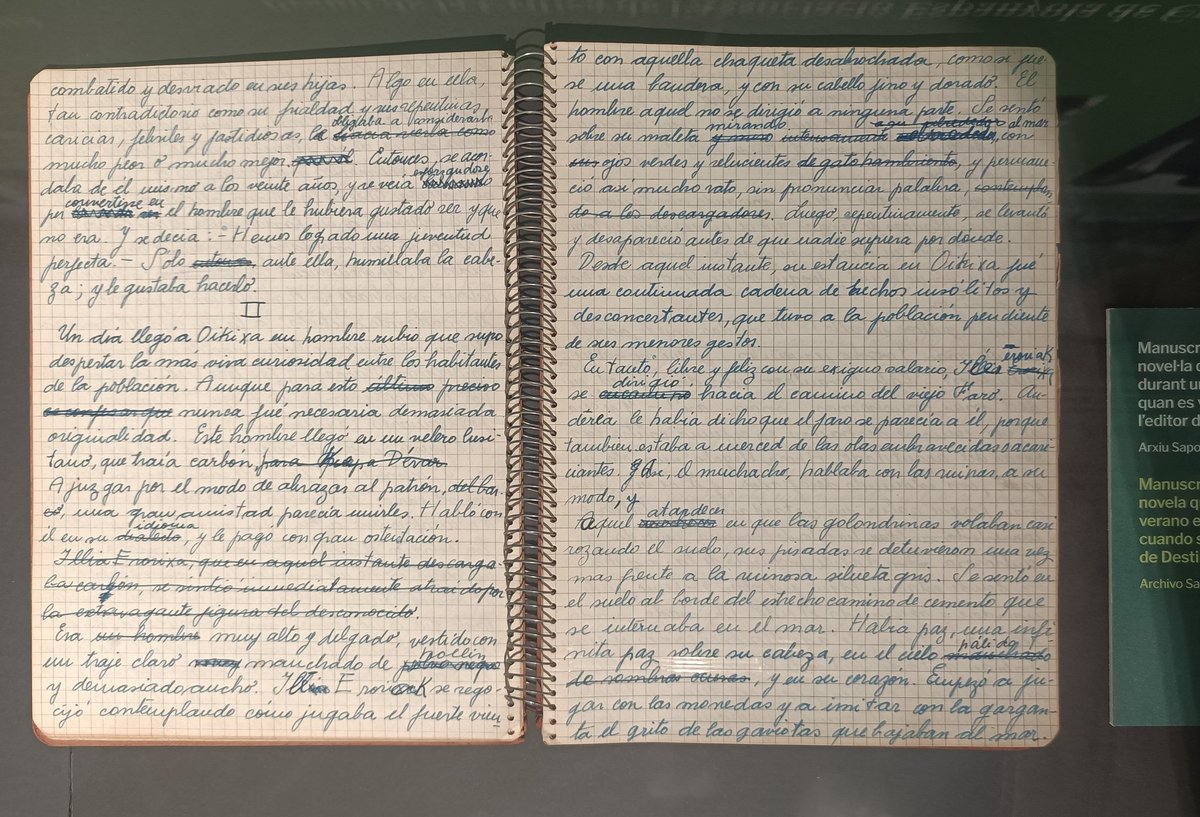 combatido y desviado en sus hijas. Algo en ella,
tan contradictorio como su frialdad y sus repentinas
obligaba a considerarla
caricias, febriles y fastidiosas, la hacia verla como
mucho peor o mucho mejor. Entonces, se acor-
esforzándose
daba de él mismo a los veinte años, y se veía
convertirse en
por el hombre que le hubiera gustado ser y que
no era. Y se decía: - Hemos logrado una juventud
perfecta. - Sólo entonces, ante ella, humillaba la cabe-
za; y le gustaba hacerlo.
II
Un día llegó a Oikixa un hombre rubio que supo
despertar la más viva curiosidad entre los habitantes
de la población. Aunque para esto preciso
es confesar que nunca fue necesaria demasiada
originalidad. Este hombre llegó en un velero lusi-
tano, que traía carbón, para
A juzgar por el modo de abrazar al patrón, del bar-
co, una gran amistad parecía unirles. Habló con
idioma
él en su dialecto, y le pagó con gran ostentación.
Illia Eroixa, que en aquel instante descarga-
ba carbón, se sintió inmediatamente atraído por
la extravagante figura del desconocido.
Era un hombre muy alto y delgado, vestido con
hollín
un traje claro muy manchado de polvo negro
y demasiado ancho. Eroriak se rego-
cijó contemplando cómo jugaba el fuerte vien
to con aquella chaqueta desabrochada, como si fue-
se una bandera, y con su cabello fino y dorado. El
hombre aquel no se dirigió a ninguna parte. Se sentó
mirando a su alrededor al mar
sobre su maleta y miró intensamente alrededor, con
sus ojos verdes y relucientes de gato hambriento, y permane-
ció así mucho rato, sin pronunciar palabra, contemplan
do a los descargadores. Luego, repentinamente, se levantó
y desapareció antes de que nadie supiera por dónde.
Desde aquel instante, su estancia en Oikixa fué
una continuada cadena de hechos insólitos y
desconcertantes, que tuvo a la población pendiente
de sus menores gestos.
Eroriak
En tanto, libre y feliz con su exiguo salario,
dirigió
se encaminó hacia el camino del viejo Faro. An-
derea le había dicho que el faro se parecía a él, porque
también estaba a merced de las olas embravecidas o acari-
ciantes. O muchacho, hablaba con las ruinas, a su
modo, y
atardecer
Aquel en que las golondrinas volaban casi
rozando el suelo, sus pisadas se detuvieron una vez
más frente a la ruinosa silueta gris. Se sentó en
el suelo al borde del estrecho camino de cemento que
se internaba en el mar. Había paz, una infi-
pálido
nita paz sobre su cabeza, en el cielo manchado
de sombras oscuras, y en su corazón. Empezó a ju-
gar con las monedas y a imitar con la gargan-
ta el grito de las gaviotas que bajaban al mar.
Manuscr
novel·la d
durant u
quan es v
l'editor d
Arxiu Sapo
Manuscr
novela qu
verano e
cuando s
de Desti
Archivo Sa